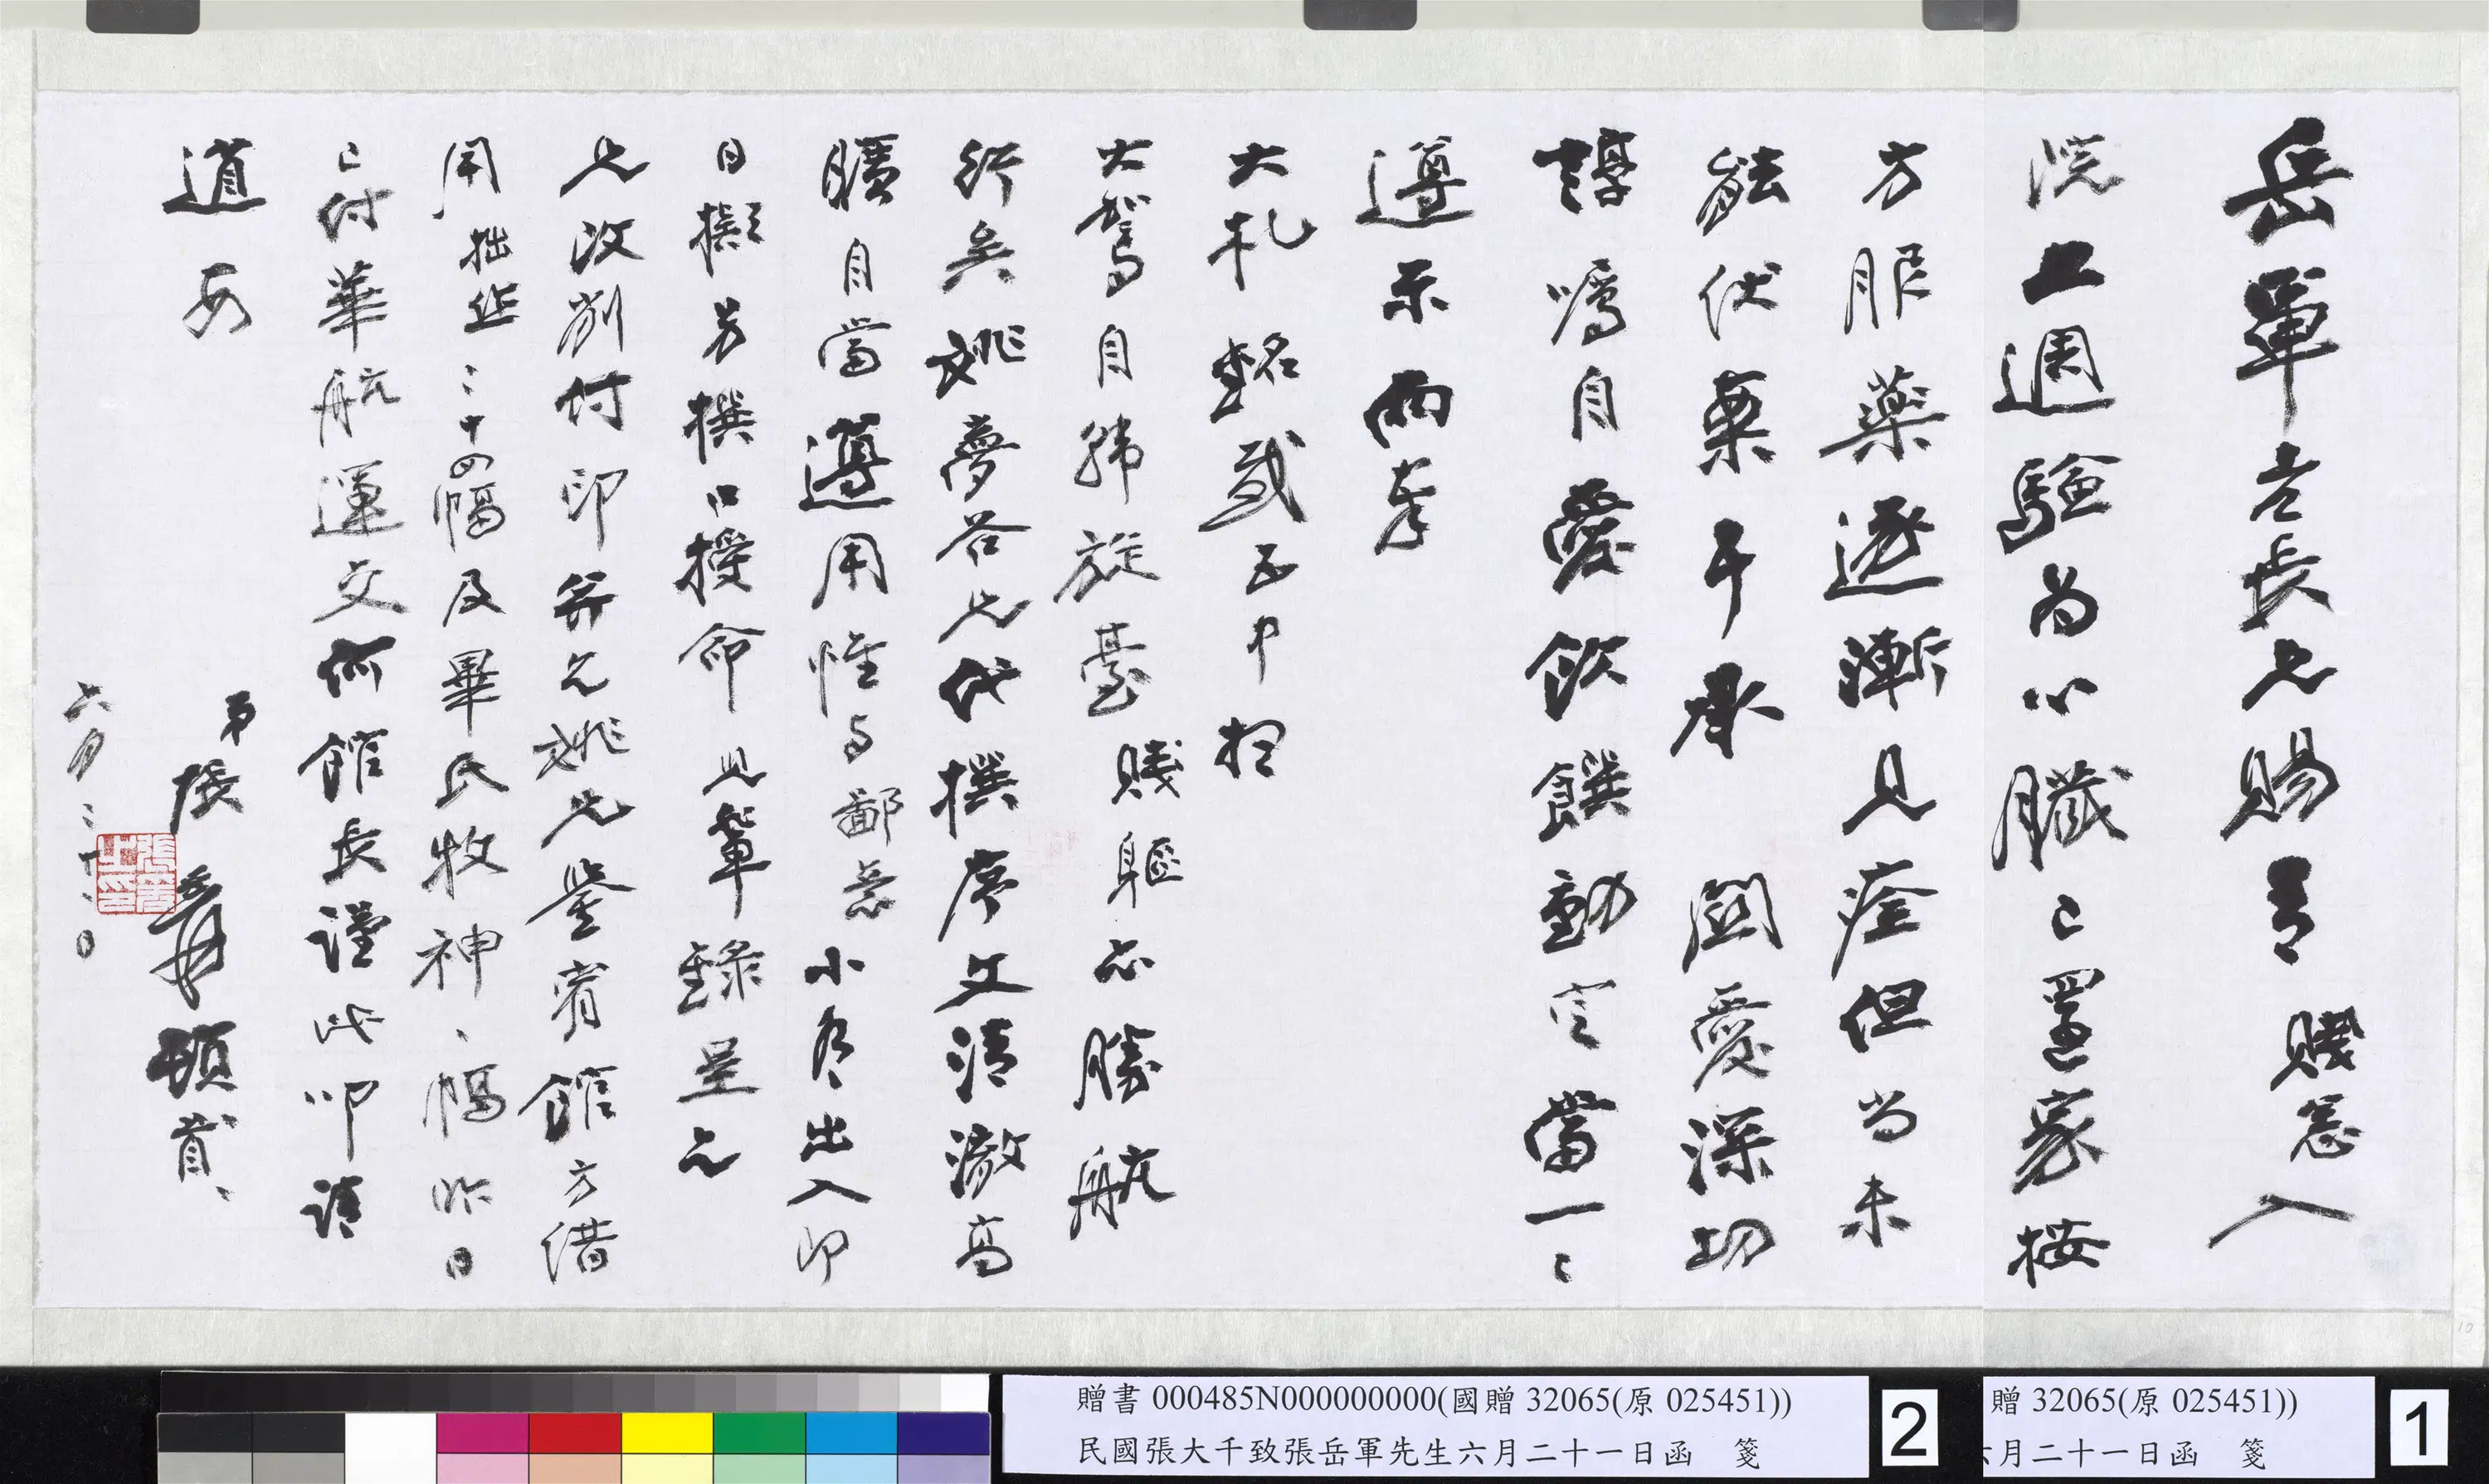 岳軍吾長兄賜鑒賤恙入
院二週驗為心臟已置家按
方服藥逐漸見痊但尚未
能伏案耳承 關愛深切
諄囑自愛飲饌動定當一一
遵示兩奉
大札銘感五中
大駕自韓旋臺賤軀忘勝航
行矣姚夢谷兄代撰序文清澈高
曠自當遵用惟與鄙意小有出入印
日擬另撰口授命兒輩錄呈兄
兄改削付印并乞姚兄鑒宥館方借
用拙作二十四幅及畢氏牧神一幅昨日
已付華航運交何館長謹此叩請
道安
弟張爰頓首
六月二十一日
張爰之印
贈書 000485N000000000(國贈 32065(原 025451))
民國張大千致張岳軍先生六月二十一日函 箋
2
贈 32065(原 025451))
六月二十一日函 箋
1
10